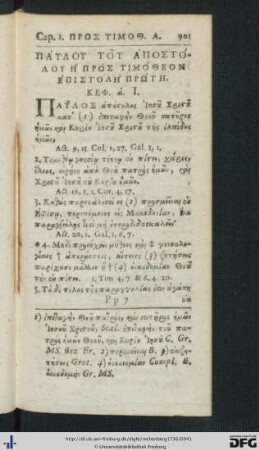 Cap. 1. ΠΡΟΣ ΤΙΜΟΘ. Α. 901
ΠΑΥΛΟΥ ΤΟΥ ΑΠΟΣΤΟ-
ΛΟΥ Η ΠΡΟΣ ΤΙΜΟΘΕΟΝ
ΕΠΙΣΤΟΛΗ ΠΡΩΤΗ.
ΚΕΦ. α. I.
ΠΑΥΛΟΣ ἀπόστολος Ἰησοῦ Χριστοῦ
κατ' (1) ἐπιταγὴν Θεοῦ σωτῆρος
ἡμῶν, καὶ Κυρίου Ἰησοῦ Χριστοῦ τῆς ἐλπίδος
ἡμῶν,
Act. 9, 15. Col. 1, 27. Gal. 1, 1.
2. Τιμοθέῳ γνησίῳ τέκνῳ ἐν πίστει, χάρις,
ἔλεος, εἰρήνη ἀπὸ Θεοῦ πατρὸς ἡμῶν, καὶ
Χριστοῦ Ἰησοῦ τοῦ Κυρίου ἡμῶν.
Act. 16, 1. 1. Cor. 4, 17.
3. Καθὼς παρεκάλεσά σε (2) προσμεῖναι ἐν
Ἐφέσῳ, πορευόμενος εἰς Μακεδονίαν, ἵνα
παραγγείλῃς τισὶ μὴ ἑτεροδιδασκαλεῖν
Act. 20, 1. Gal. 1, 6. 7.
4. Μηδὲ προσέχειν μύθοις καὶ γενεαλο-
γίαις ἀπεράντοις, αἵτινες (3) ζητήσεις
παρέχουσι μᾶλλον ἢ (4) οἰκοδομίαν Θεοῦ
τὴν ἐν πίστει. 1. Tim. 4, 7. & 6, 4. 20.
5. Τὸ δὲ τέλος τῆς παραγγελίας ἐστὶν ἀγάπη
Pp 7
1) ἐπιταγὴν Θεοῦ πατρὸς, καὶ σωτῆρος ἡμῶν
MS. Bez. Er. 2) περιμεῖναι B. 3)
Grot. 4) οἰκονομίαν Compl. B.
Gr. MS.
http://dl.ub.uni-freiburg.de/diglit/rechenberg1736/0941
© Universitätsbibliothek Freiburg
DFG